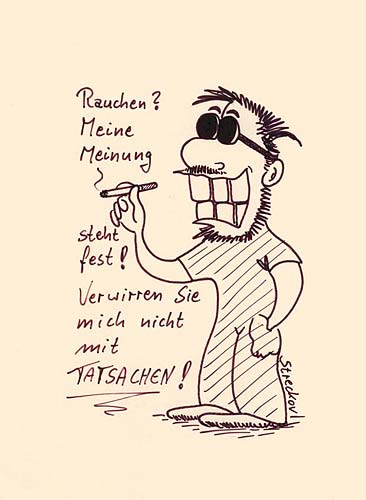 Rauchen?
Meine
Meinung
steht
fest!
Verwirren Sie
mich nicht
mit
TATSACHEN!
Streckovl